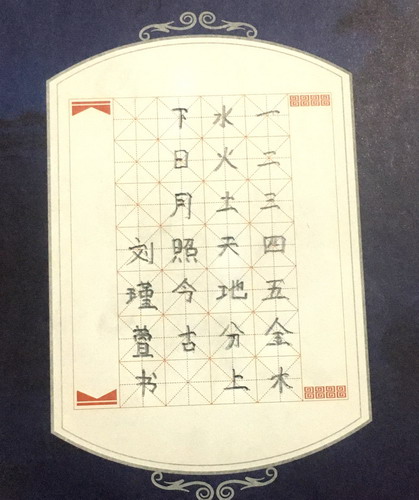 一二三四五金木
水火土天地分上
下日月照今古
刘瑾萱书